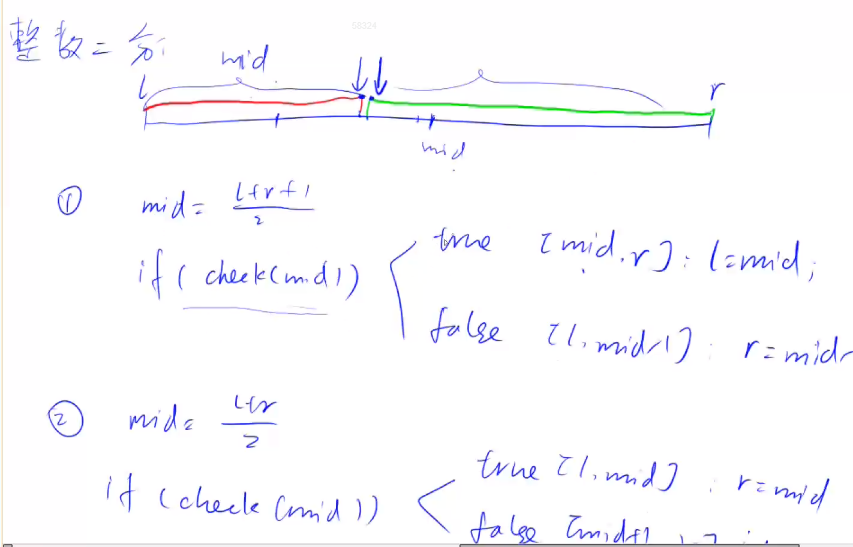 整数二分
58324
mid
l r
mid
① mid = l+r+1
2
if ( check(mid))
true [mid, r] : l=mid;
false [l, mid-1] : r=mid-
② mid = l+r
2
if (check(mid))
true [l, mid] : r=mid
false [mid+1